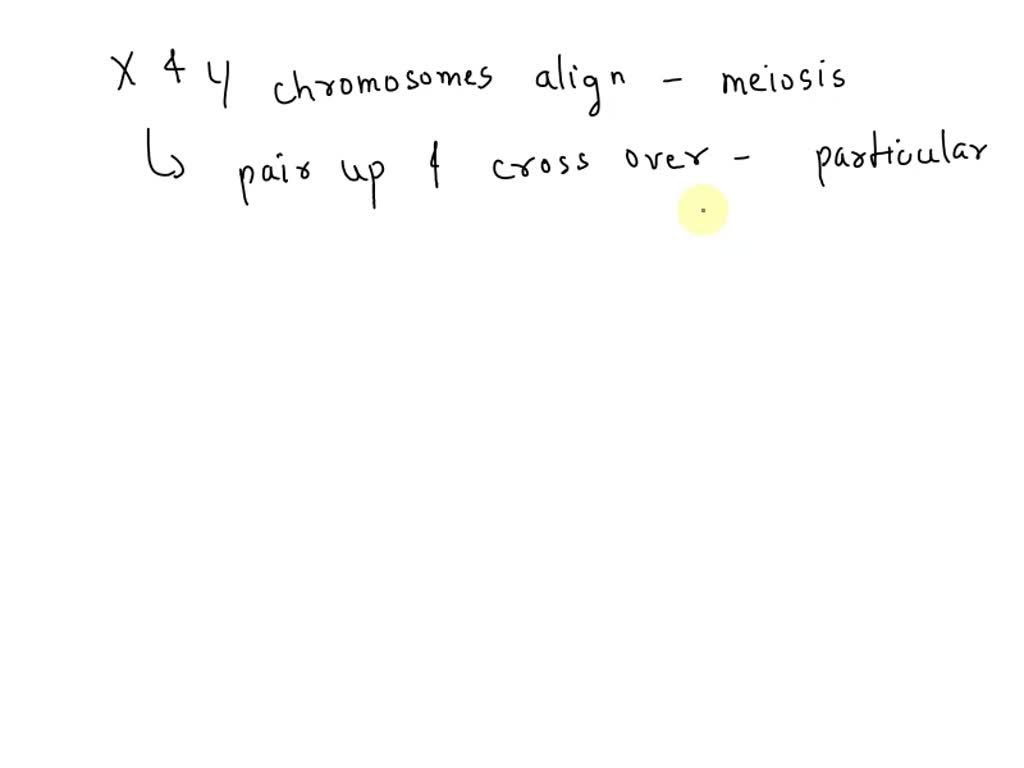 X & Y chromosomes align - meiosis
↳ pair up & cross over - particular